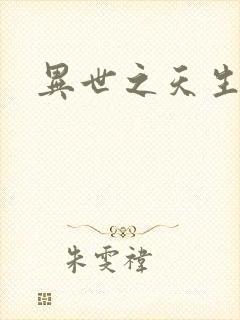 異世之天生
朱雯褘